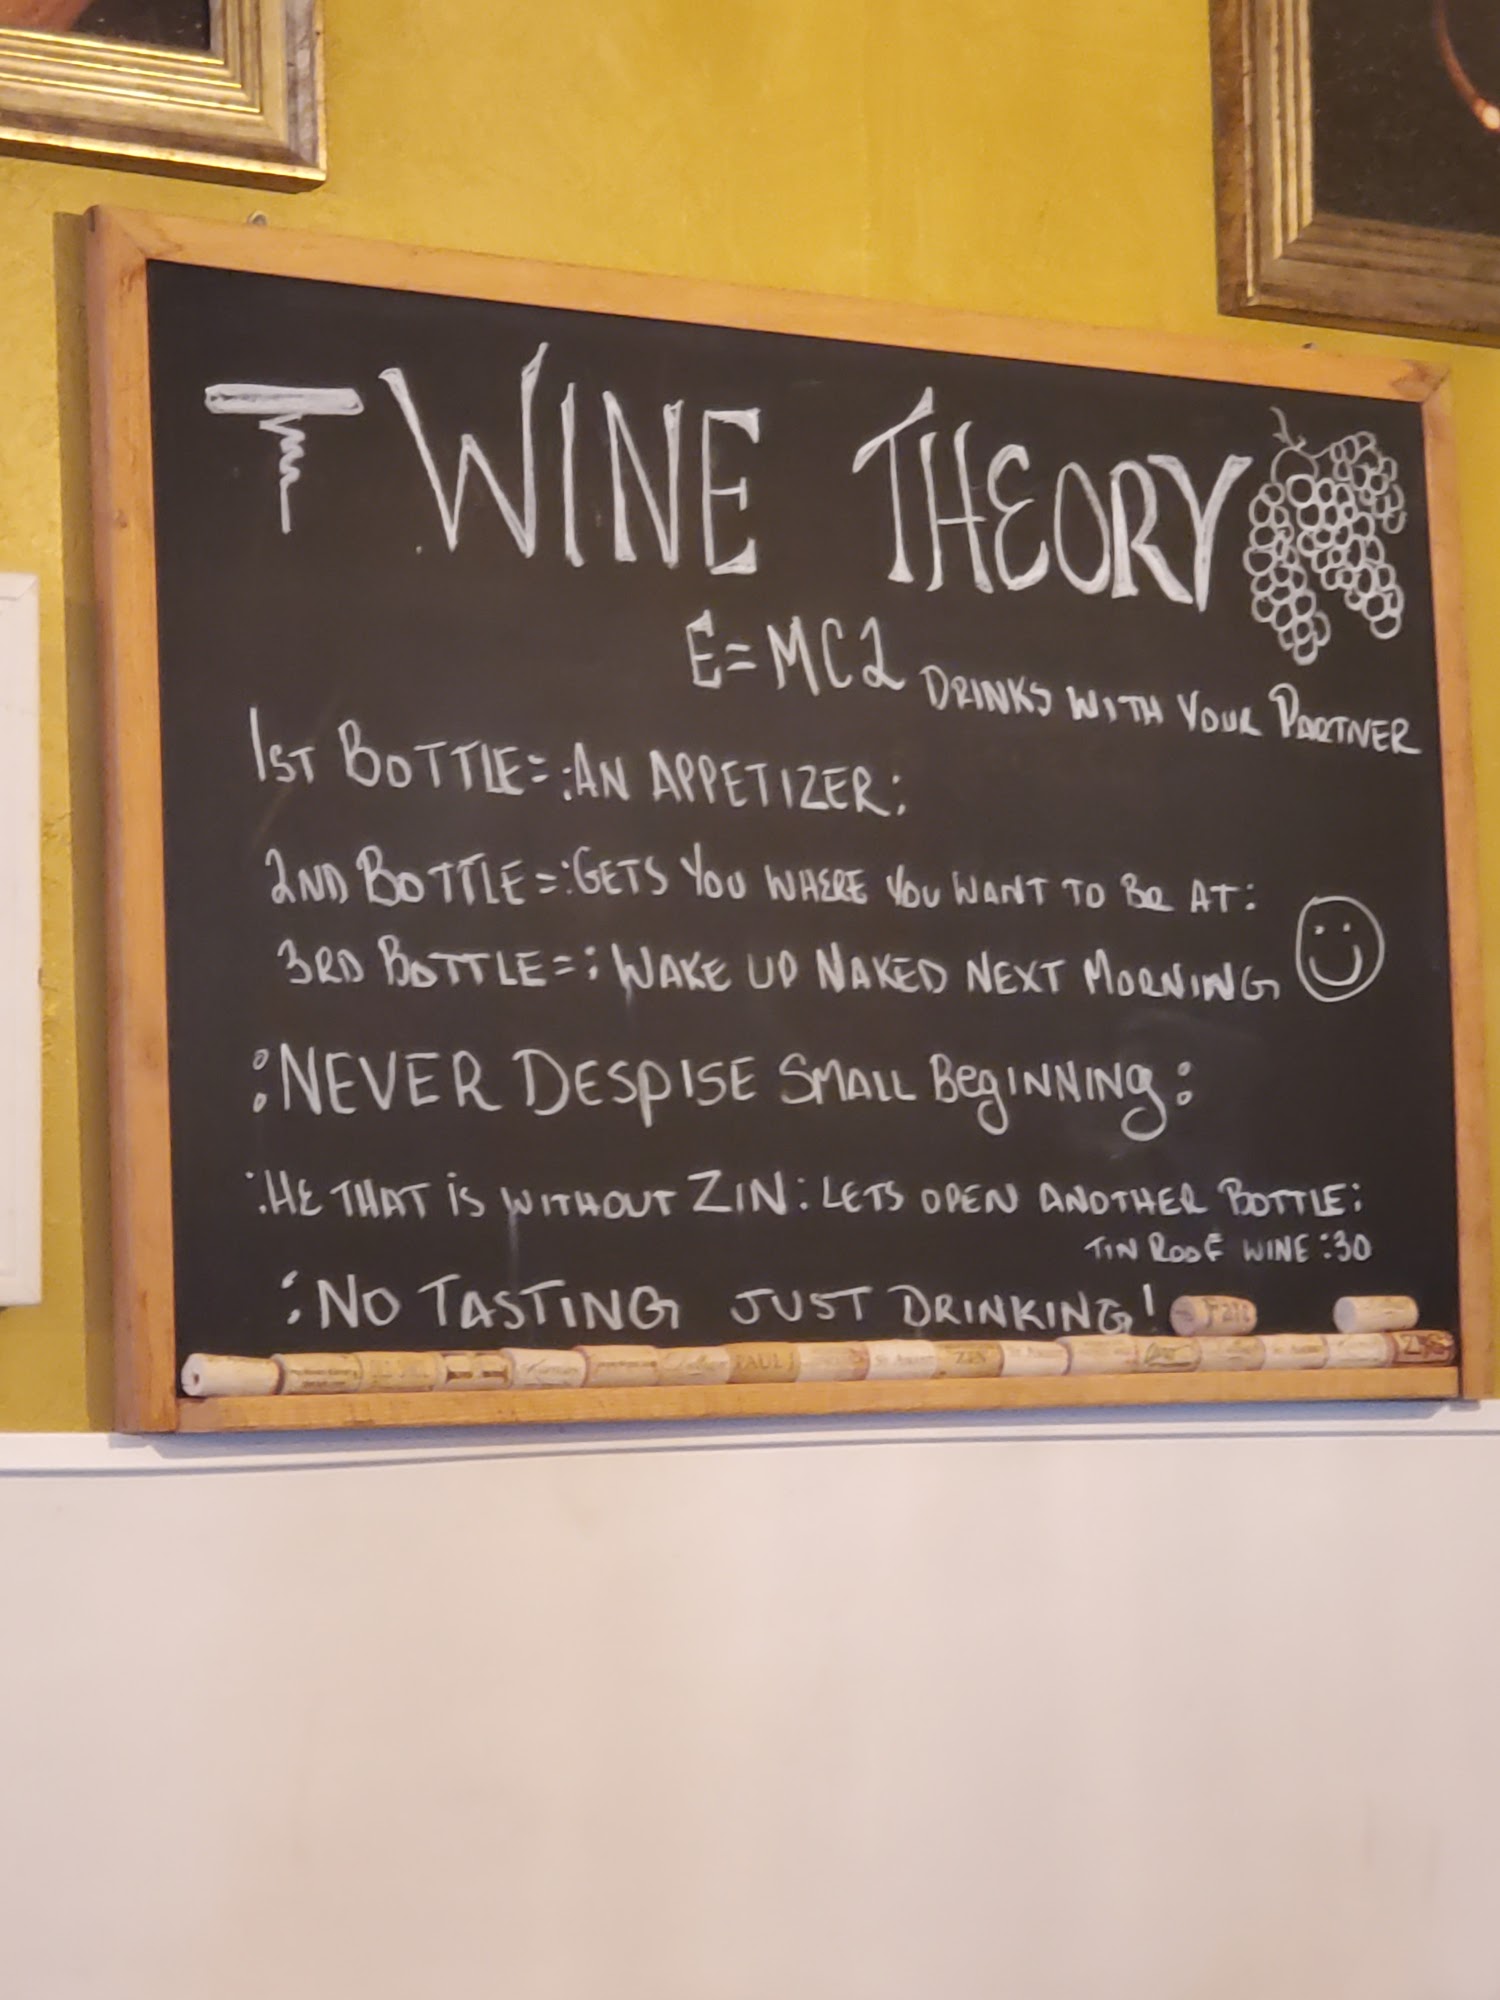 WINE THEORY
E=MC2 DRINKS WITH YOUR PARTNER
1ST BOTTLE=:AN APPETIZER:
2ND BOTTLE=:GETS YOU WHERE YOU WANT TO BE AT:
3RD BOTTLE=: WAKE UP NAKED NEXT MORNING
:NEVER DESPISE SMALL BEGINNING:
:HE THAT IS WITHOUT ZIN: LETS OPEN ANOTHER BOTTLE:
TIN ROOF WINE :30
:NO TASTING JUST DRINKING!
PAUL ZIN